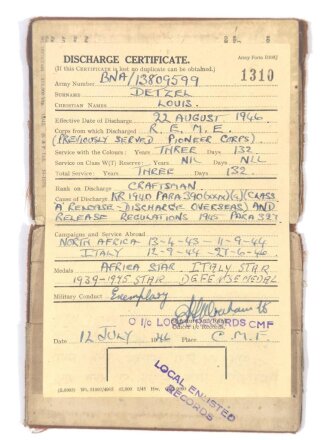 DISCHARGE CERTIFICATE. Army Form
(If this CERTIFICATE is lost no duplicate can be obtained.)
1310
Army Number BNA/13809599
SURNAME DETZEL
CHRISTIAN NAMES LOUIS.
Effective Date of Discharge 22 AUGUST 1946.
Corps from which Discharged R. E. M. E.
(PREVIOUSLY SERVED PIONEER CORPS).
Service with the Colours: Years THREE Days 132
Service on Class W(T) Reserve: Years NIL Days NIL
Total Service: Years THREE Days 132
Rank on Discharge CRAFTSMAN.
Cause of Discharge KR 1940 PARA 390 (CLASS
A RELEASE - DISCHARGE OVERSEAS) AND
RELEASE REGULATIONS 1945 PARA 327
Campaigns and Service Abroad
NORTH AFRICA 13-4-43 - 11-9-44
ITALY 12-9-44 - 27-6-46
Medals AFRICA STAR ITALY STAR
1939-1945 STAR DEFENSE MEDAL
Military Conduct Exemplary
O i/c LOCAL RECORDS CMF
Officer i/c Records.
Date 12 JULY 1946 Place C.M.F.
LOCAL ENLISTED
RECORDS